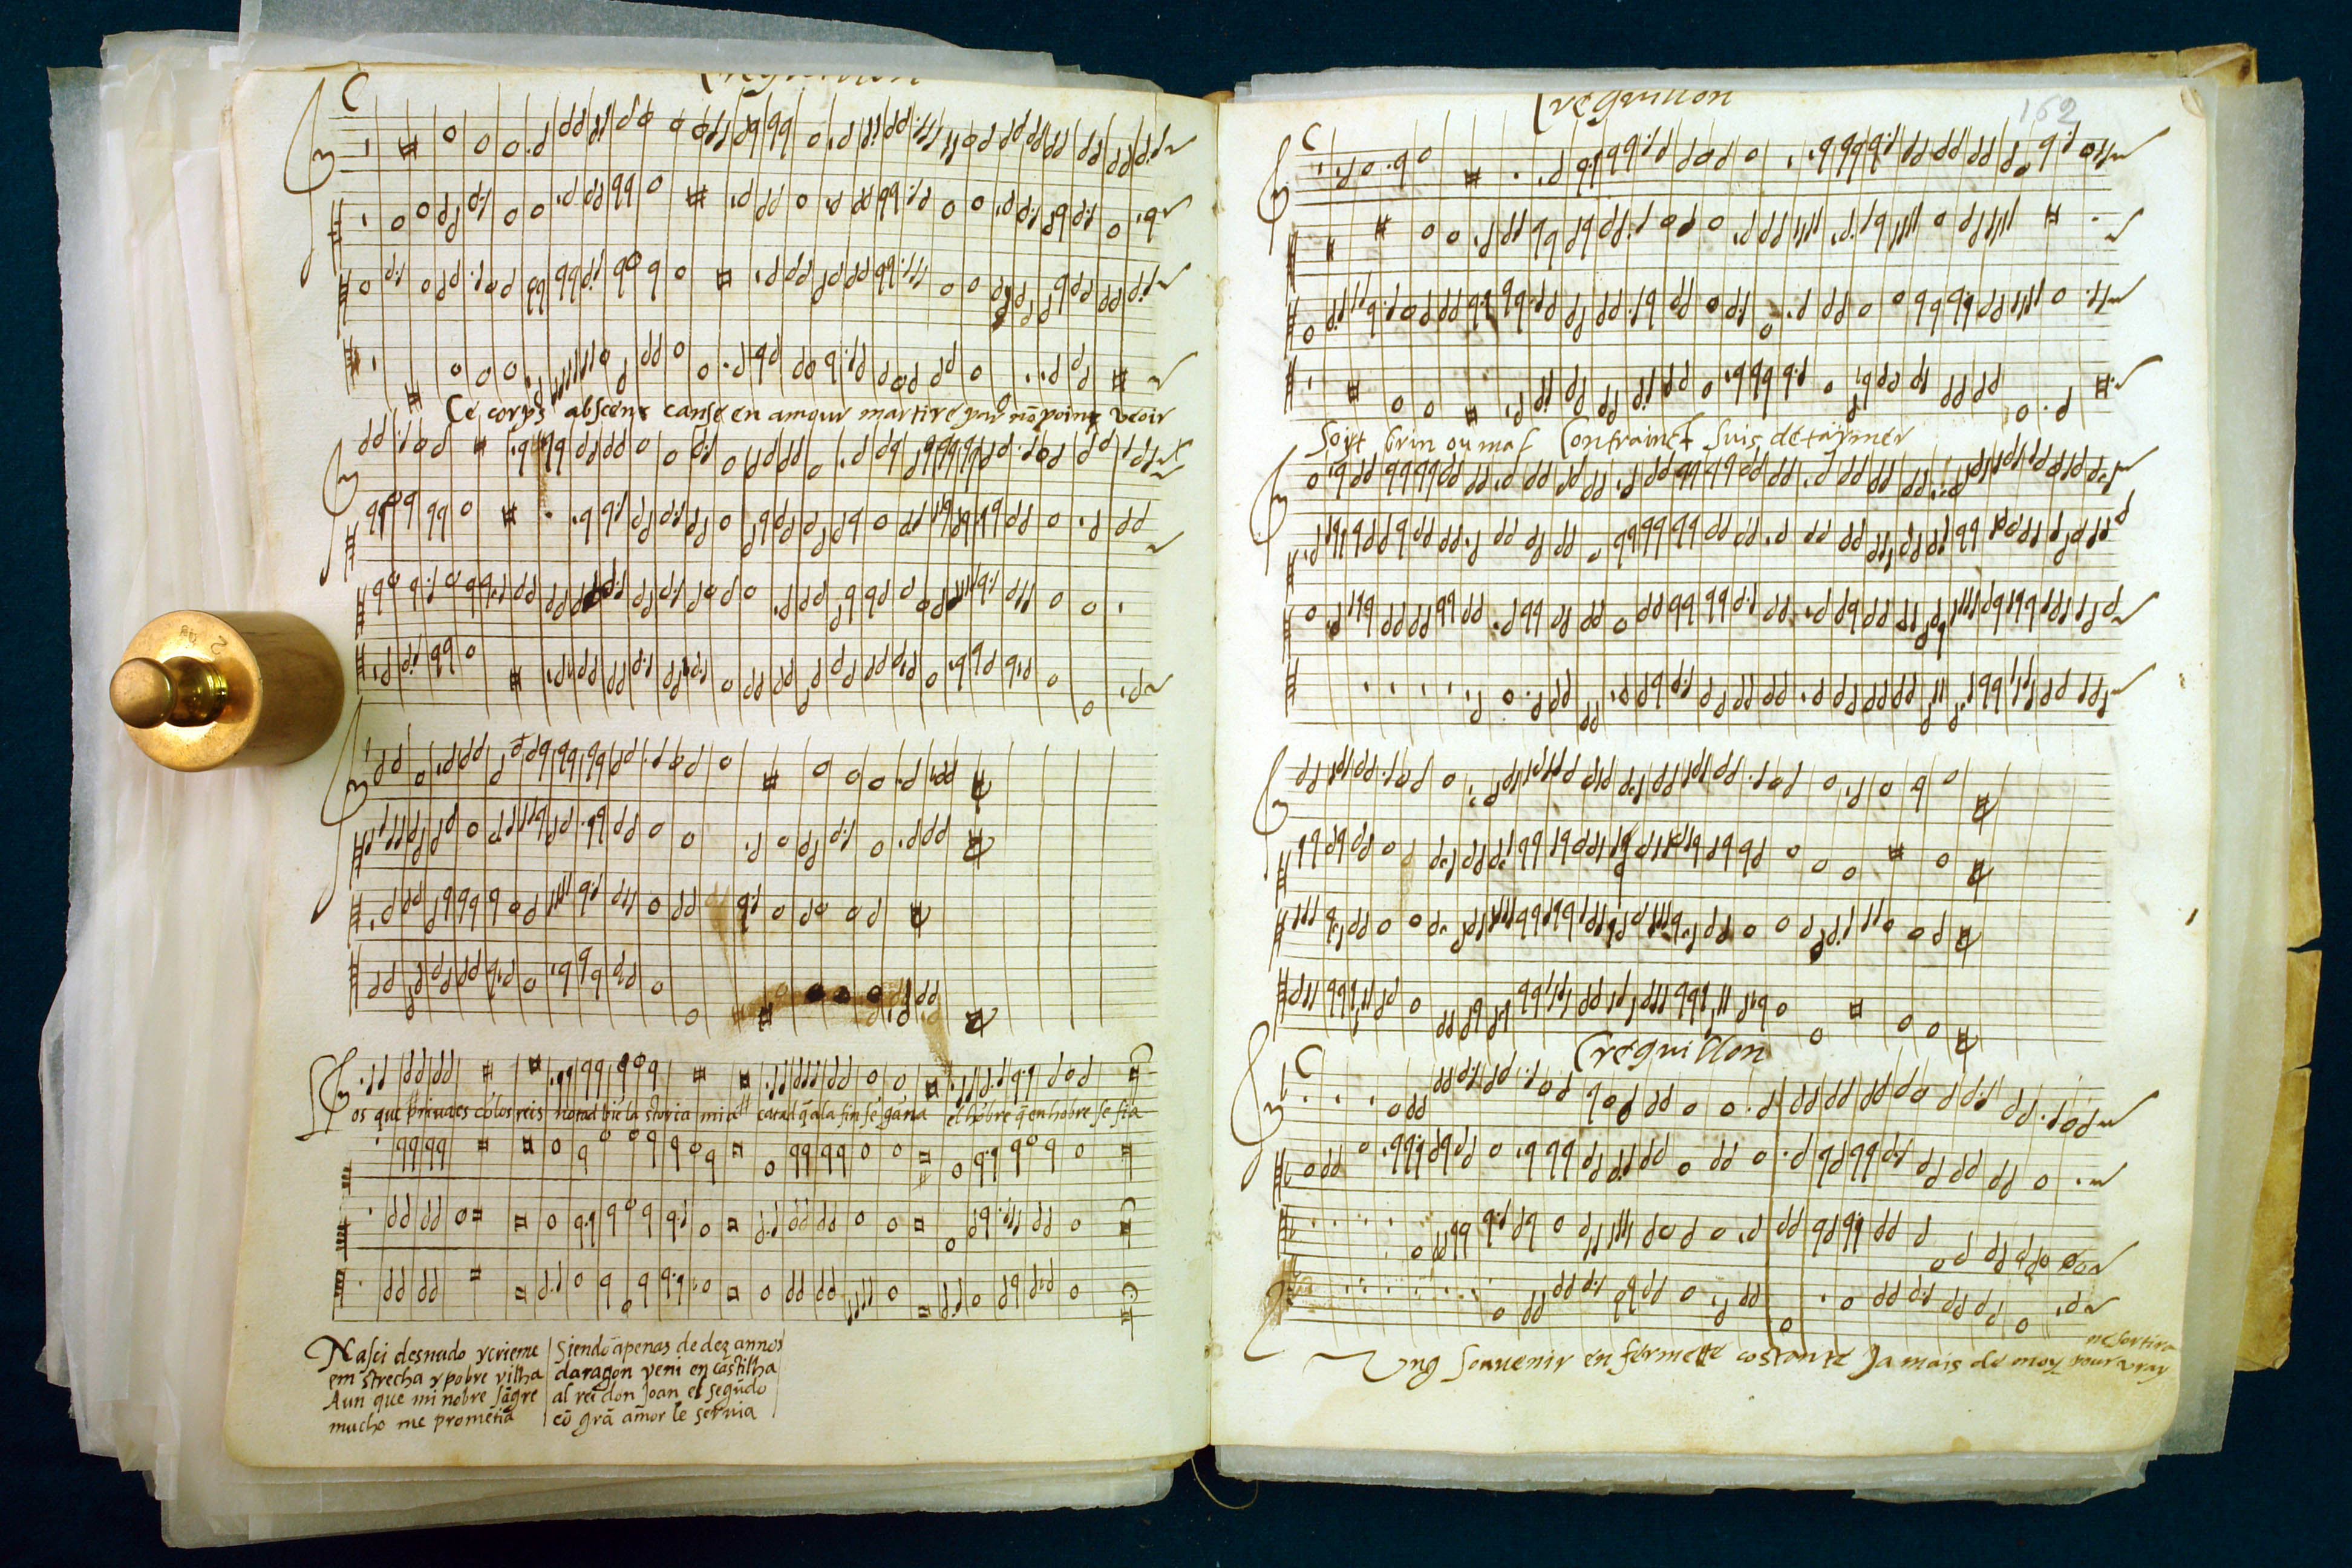 Ce corps absent cause en amour martire pour nõ point veoir
os que privaes cõlos reis notad biẽ la storia mia catad q̃ ala fin se gana el hõbre q̃ en hõbre se fia
Nasci desnudo y crieme
em strecha y pobre vilha
Aun que mi nobre sãgre
mucho me prometia
Siendo apenas de dez annos
daragon veni en castilha
al rei don Joan el segũdo
cõ grã amor le servia
162
Crequillon
Soit brin ou mal Contrainct suis detarmer
Crequillon
Ung souvenir en fermette costante Jamais de moy pour vray
ne sortira
2